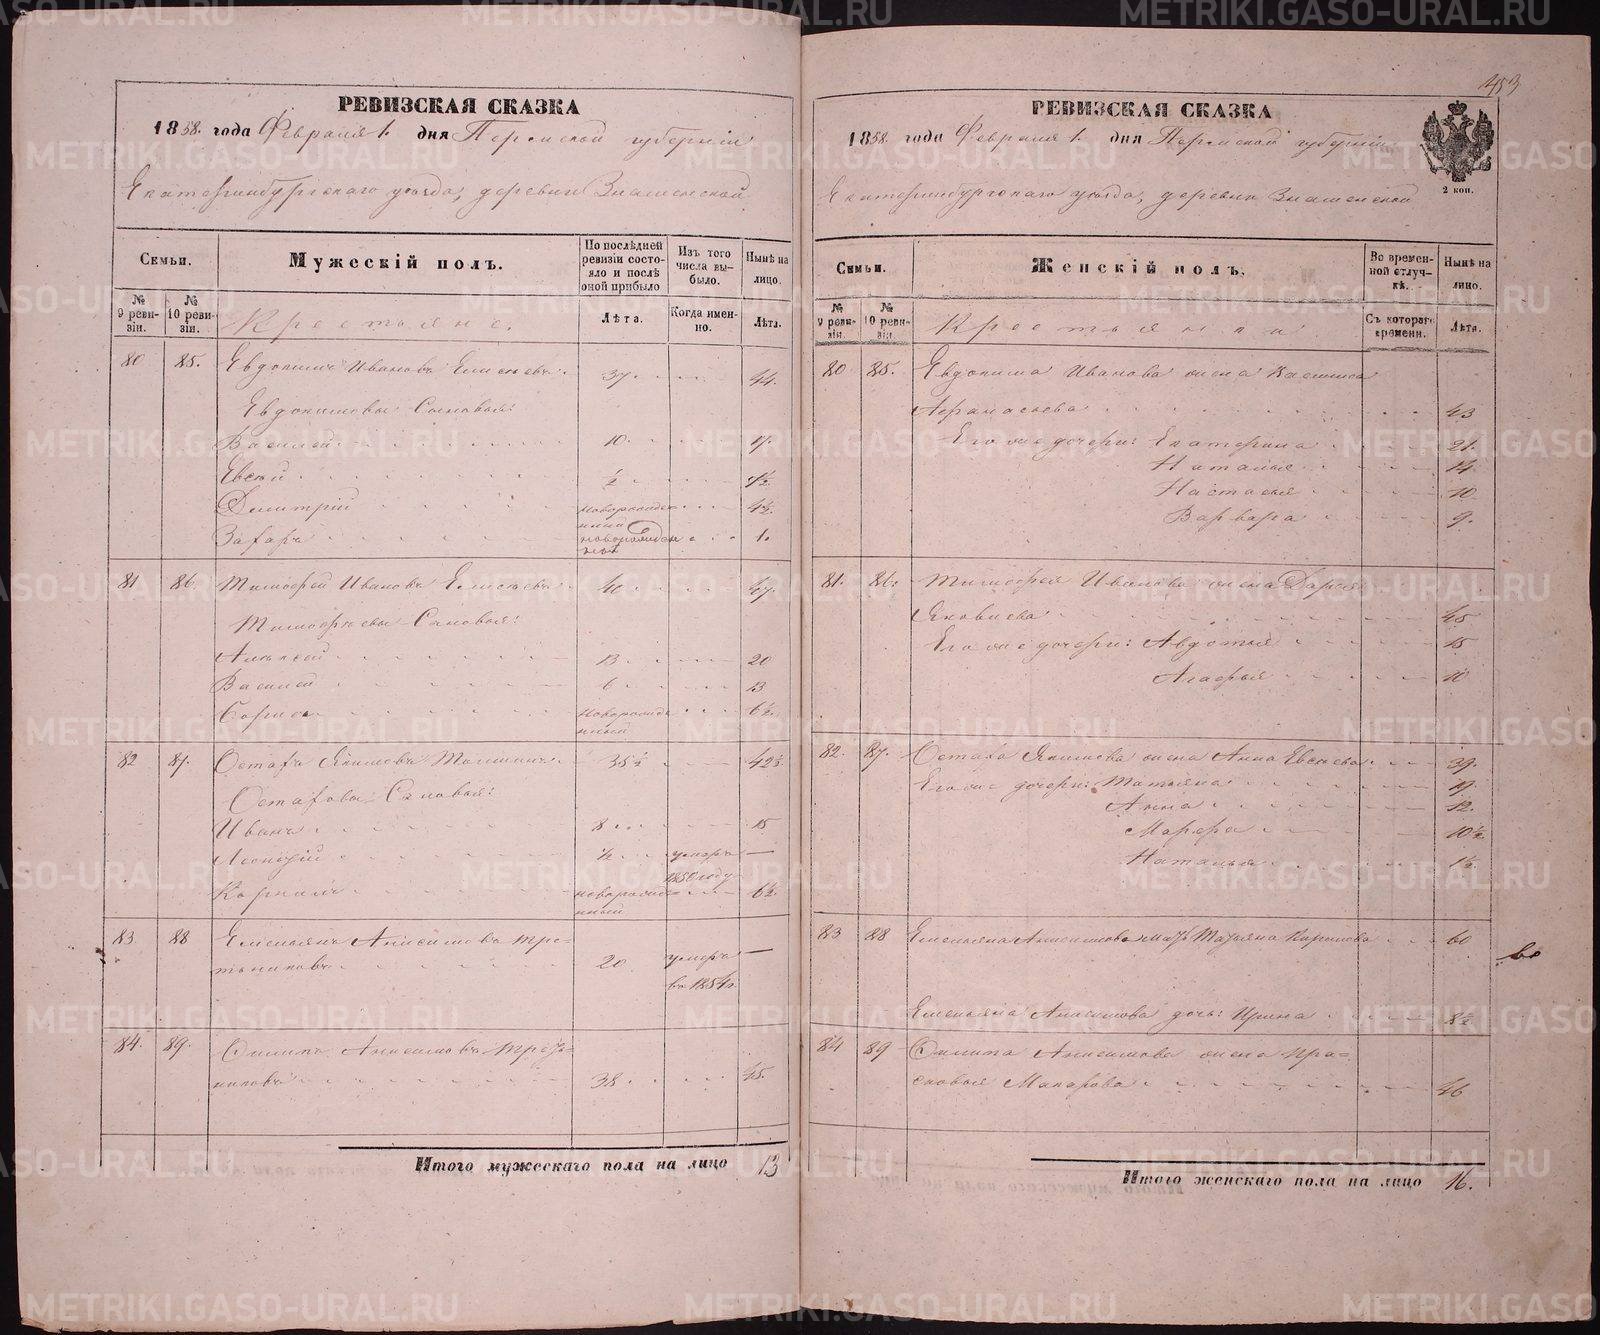 РЕВИЗСКАЯ СКАЗКА
1858. года Февраля 1. дня Пермской губерніи
Екатеринбургскаго уѣзда, деревни Знаменской
Семьи.
Мужескій полъ.
По послѣдней ревизіи состояло и послѣ оной прибыло
Изъ того числа выбыло.
Нынѣ на лицо.
№ 9 ревизіи.
№ 10 ревизіи.
Крестьяне.
Лѣта.
Когда именно.
Лѣта.
80 85. Евдокимъ Ивановъ Елисѣевъ 37 44.
Евдокимовы Сыновья:
Василей 10 17.
Евсей ½ 7½
Димитрій новорожденный 4½
Захаръ новорожденный 1.
81 86. Тимофей Ивановъ Елисѣевъ 40 47.
Тимофѣевы Сыновья:
Алексей 13 20
Василей 6 13
новорожденный 6½
82 87. Остафъ Якимовъ 35½ 42½
Остафовы Сыновья:
Иванъ 8 15
½ умеръ 1850 году —
новорожденный 6½
83 88 Емельянъ Анисимовъ Третьниковъ 20 умеръ въ 1854г. —
84. 89. Анисимовъ
никовъ 38 45.
Итого мужескаго пола на лицо 13
453
РЕВИЗСКАЯ СКАЗКА
1858. года Февраля 1. дня Пермской губерніи
Екатеринбургскаго уѣзда, деревни Знаменской
2 коп.
Семьи.
Женскій полъ.
Во временной отлучкѣ.
Нынѣ на лицо.
№ 9 ревизіи.
№ 10 ревизіи.
Крестьянки
Съ котораго времени.
Лѣта.
80 85. Евдокима Иванова жена Василиса
Афанасьева 43
Его же дочери: Екатерина 21.
Наталья 14
Настасья 10
Варвара 9.
81. 86. Тимофея Иванова жена Дарья
Яковлева 45
Его же дочери: Авдотья 15
Агафья 10
82. 87. Остафа Якимова жена Анна Евсѣева 39.
Его же дочери: Татьяна 17
Анна 12.
Марфа 10½
Наталья 1½
83 88 Емельяна Анисимова мать Татьяна Кирилова 60
Емельяна Анисимова дочь: Ирина 8½
84 89 Анисимова жена Прасковья Макарова 46
Итого женскаго пола на лицо 16.
METRIKI.GASO-URAL.RU